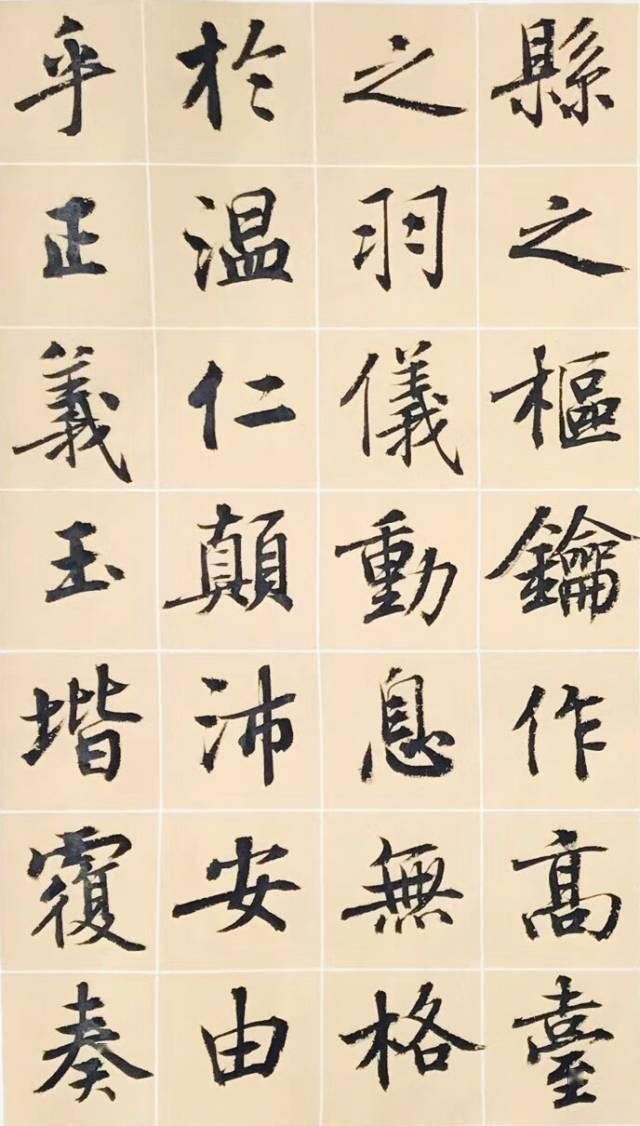 縣之樞鑰作高臺
之羽儀動息無格
於温仁顛沛安由
乎正義玉堦覆奏